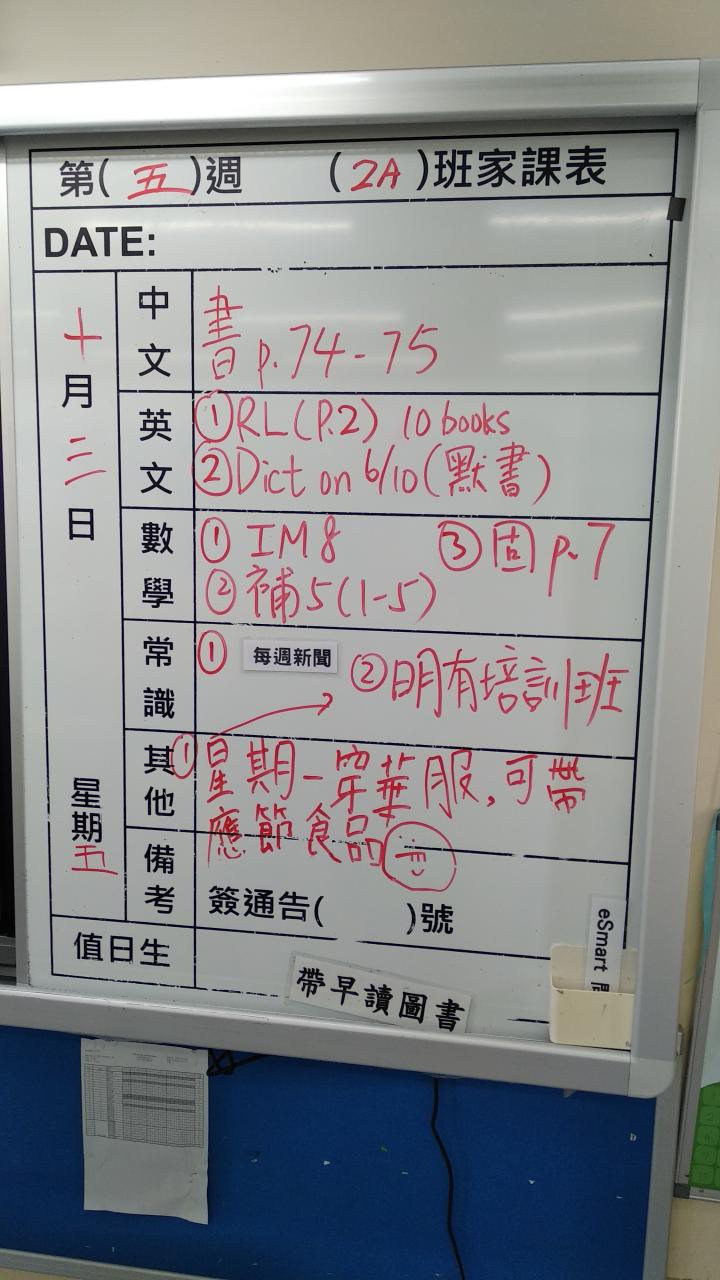 第(五)週 (2A)班家課表
DATE:
十月三日 星期五
中文 書 p.74-75
英文 ①RL(P.2) 10 books
②Dict on 6/10(默書)
數學 ① IM8 ③固 p.7
②補5(1-5)
常識 ① 每週新聞 ②明有培訓班
其他 ①星期一穿華服,可帶
應節食品
備考 簽通告( )號
值日生
帶早讀圖書
eSmart